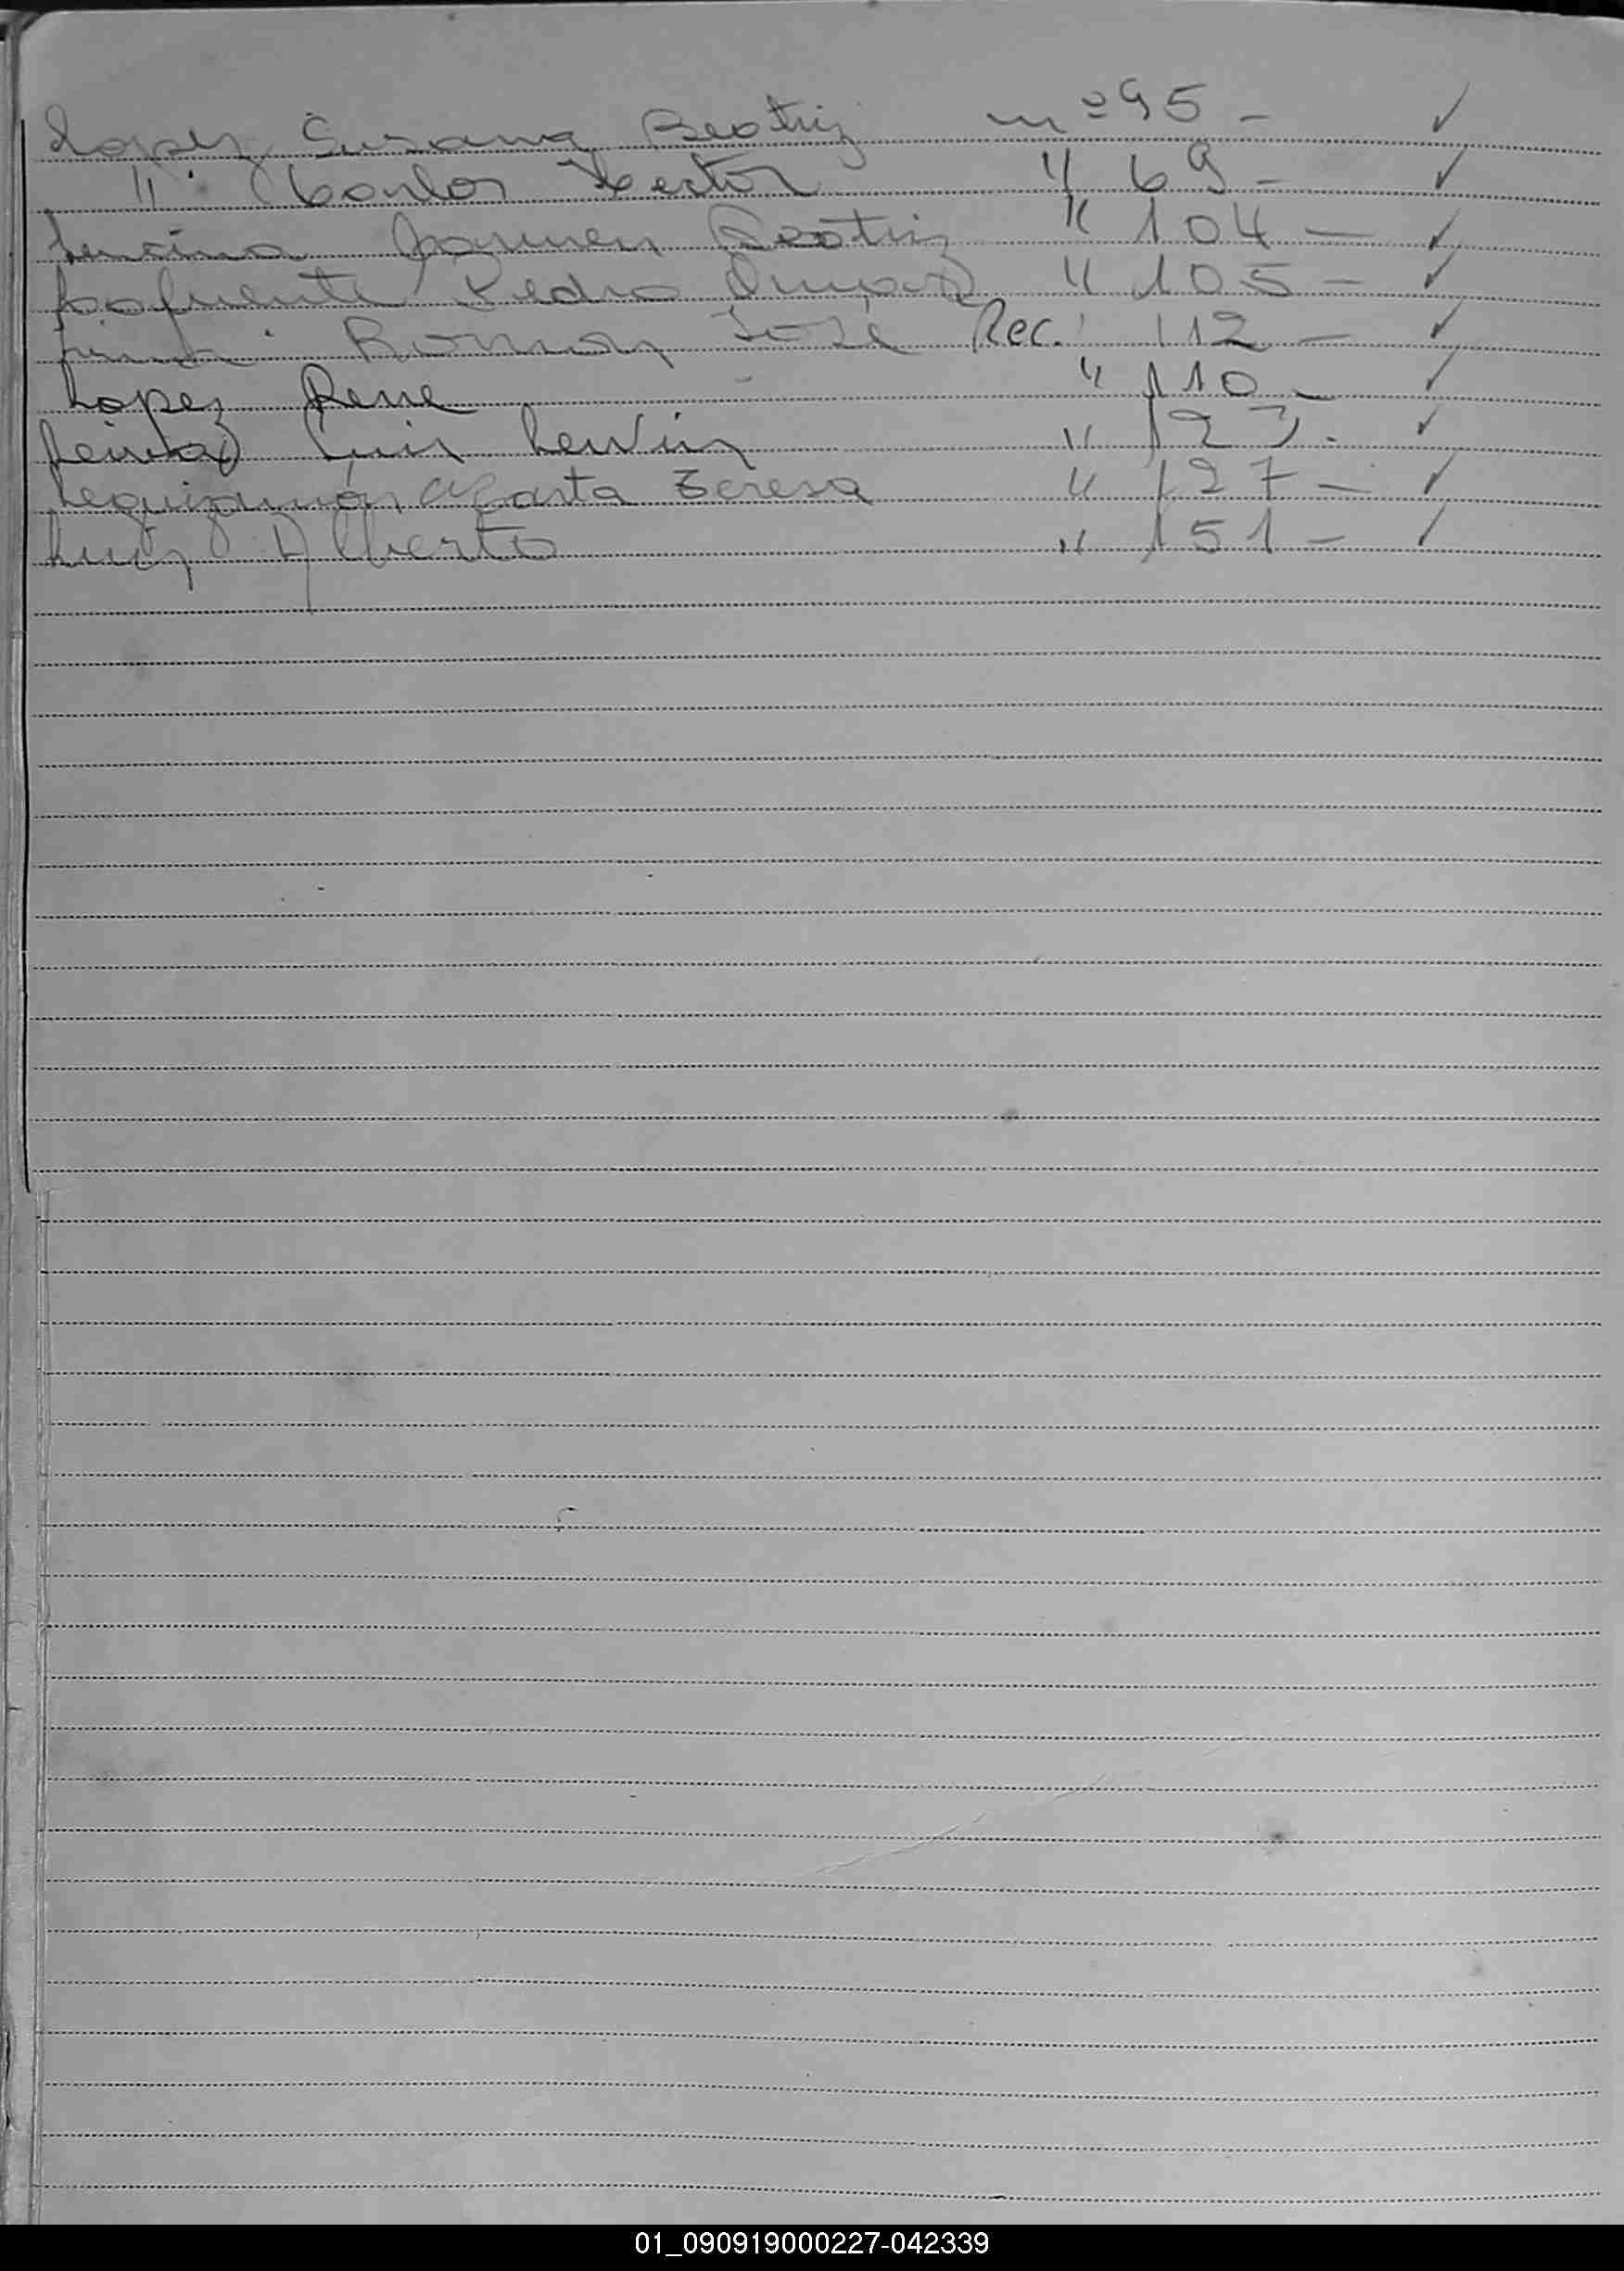 Lopez Susana Beatriz nº 95 - ✓
" Carlos Hector " 69 - ✓
Lencina Carmen Beatriz " 104 - ✓
Lafuente Pedro " 105 - ✓
Roman José Rec. 112 - ✓
Lopez Rene " 110 - ✓
Luis " 123 - ✓
Leguizamón Marta Teresa " 127 - ✓
Alberto " 151 - ✓
01_090919000227-042339